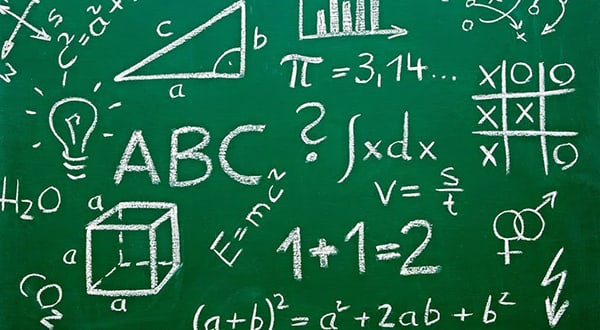 c² = a² + b
c
b
a
π = 3,14...
X O O
X X
X O
ABC
?
∫xdx
v = s/t
H₂O
a
a
a
E=mc²
1+1=2
CO₂
(a+b)² = a² + 2ab + b²